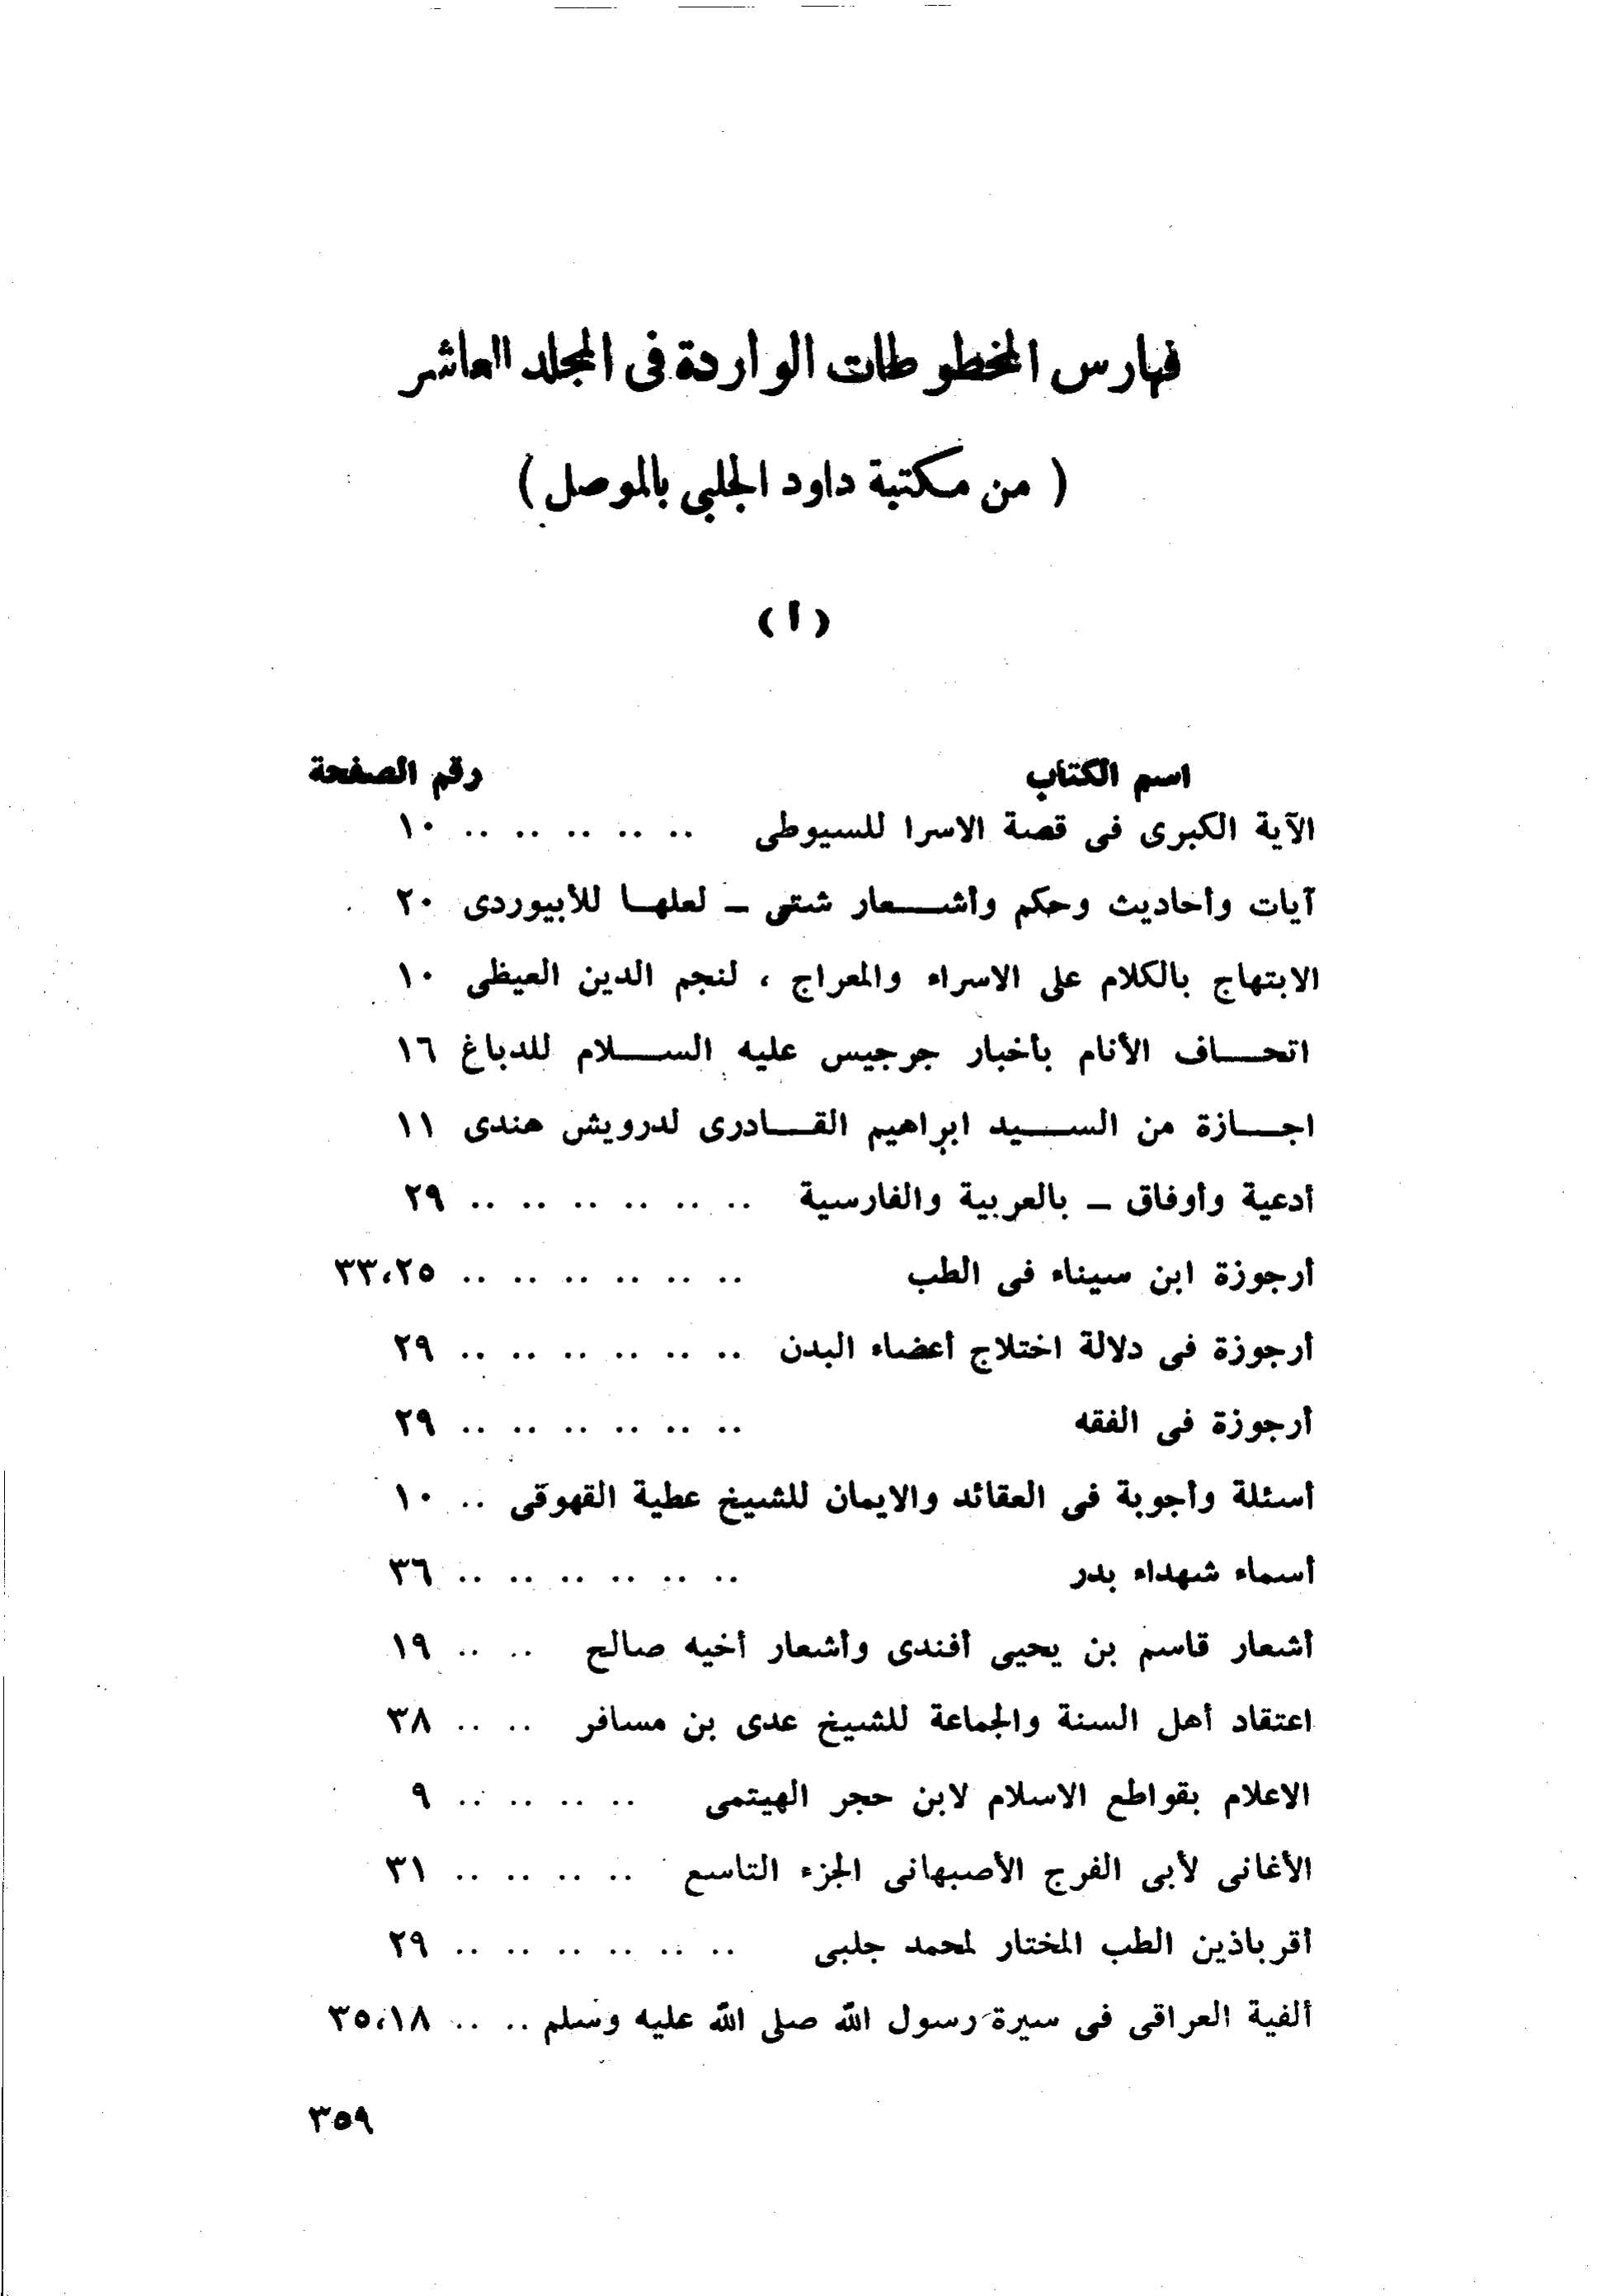 فهارس المخطوطات الواردة فى المجلد العاشر
( من مكتبة داود الجلبى بالموصل )
( ا )
اسم الكتاب رقم الصفحة
الآية الكبرى فى قصة الاسرا للسيوطى .. .. .. .. .. ١٠
آيات وأحاديث وحكم وأشعار شتى ــ لعلها للأبيوردى ٢٠
الابتهاج بالكلام على الاسراء والمعراج ، لنجم الدين العيظى ١٠
اتحاف الأنام بأخبار جرجيس عليه السلام للدباغ ١٦
اجازة من السيد ابراهيم القادرى لدرويش هندى ١١
أدعية وأوفاق ــ بالعربية والفارسية .. .. .. .. .. .. ٢٩
أرجوزة ابن سيناء فى الطب .. .. .. .. .. .. ٣٣،٢٥
أرجوزة فى دلالة اختلاج أعضاء البدن .. .. .. .. .. .. ٢٩
أرجوزة فى الفقه .. .. .. .. .. .. ٢٩
أسئلة وأجوبة فى العقائد والايمان للشيخ عطية القهوقى .. ١٠
أسماء شهداء بدر .. .. .. .. .. .. ٣٦
أشعار قاسم بن يحيى أفندى وأشعار أخيه صالح .. .. ١٩
اعتقاد أهل السنة والجماعة للشيخ عدى بن مسافر .. .. ٣٨
الاعلام بقواطع الاسلام لابن حجر الهيتمى .. .. .. .. ٩
الأغانى لأبى الفرج الأصبهانى الجزء التاسع .. .. .. .. ٣١
أقرباذين الطب المختار لمحمد جلبى .. .. .. .. .. .. ٢٩
ألفية العراقى فى سيرة رسول الله صلى الله عليه وسلم .. .. ٣٥،١٨
٣٥٩